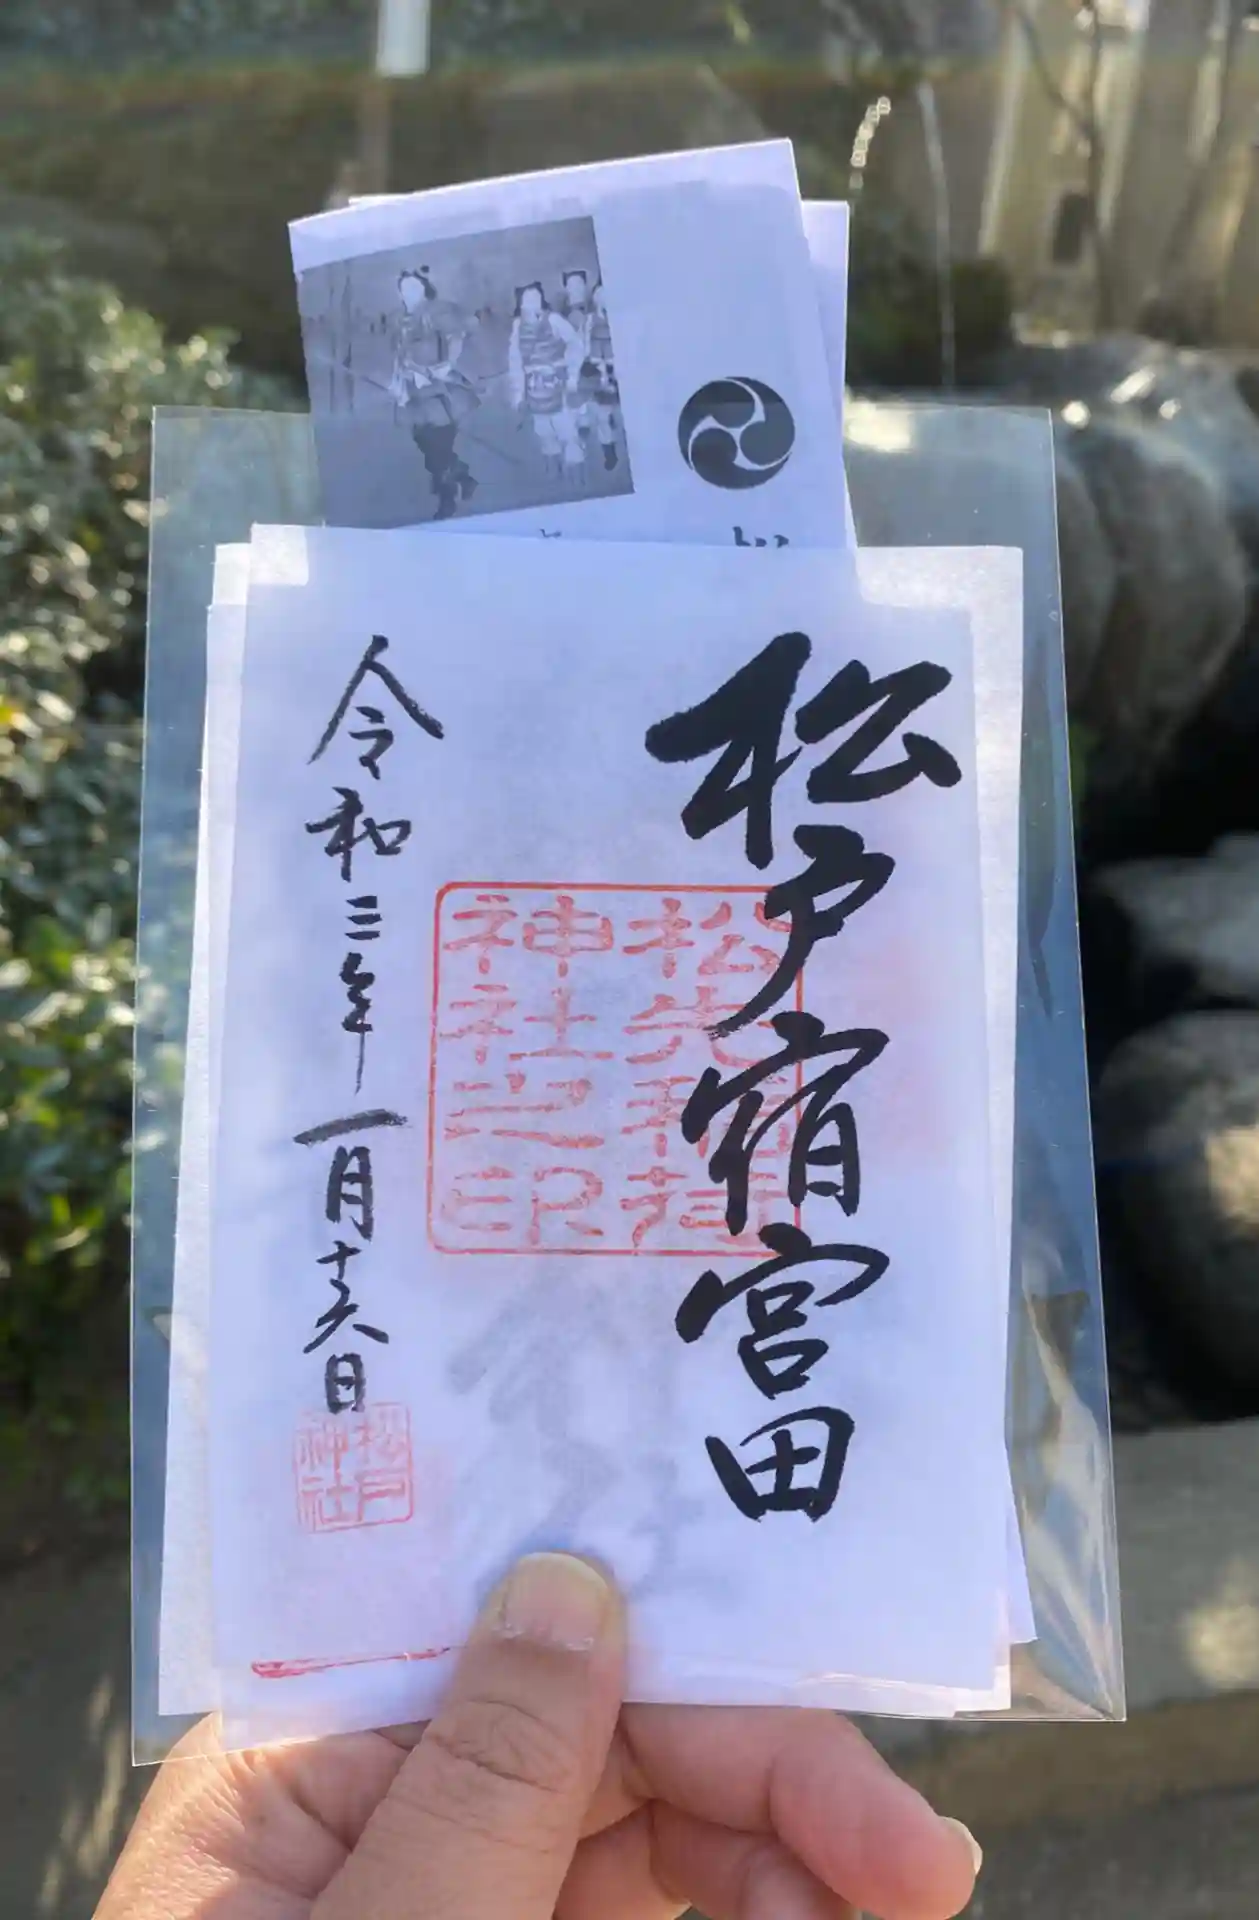 松戸宿宮田
松先稲荷
神社之印
令和三年一月十六日
松戸
神社